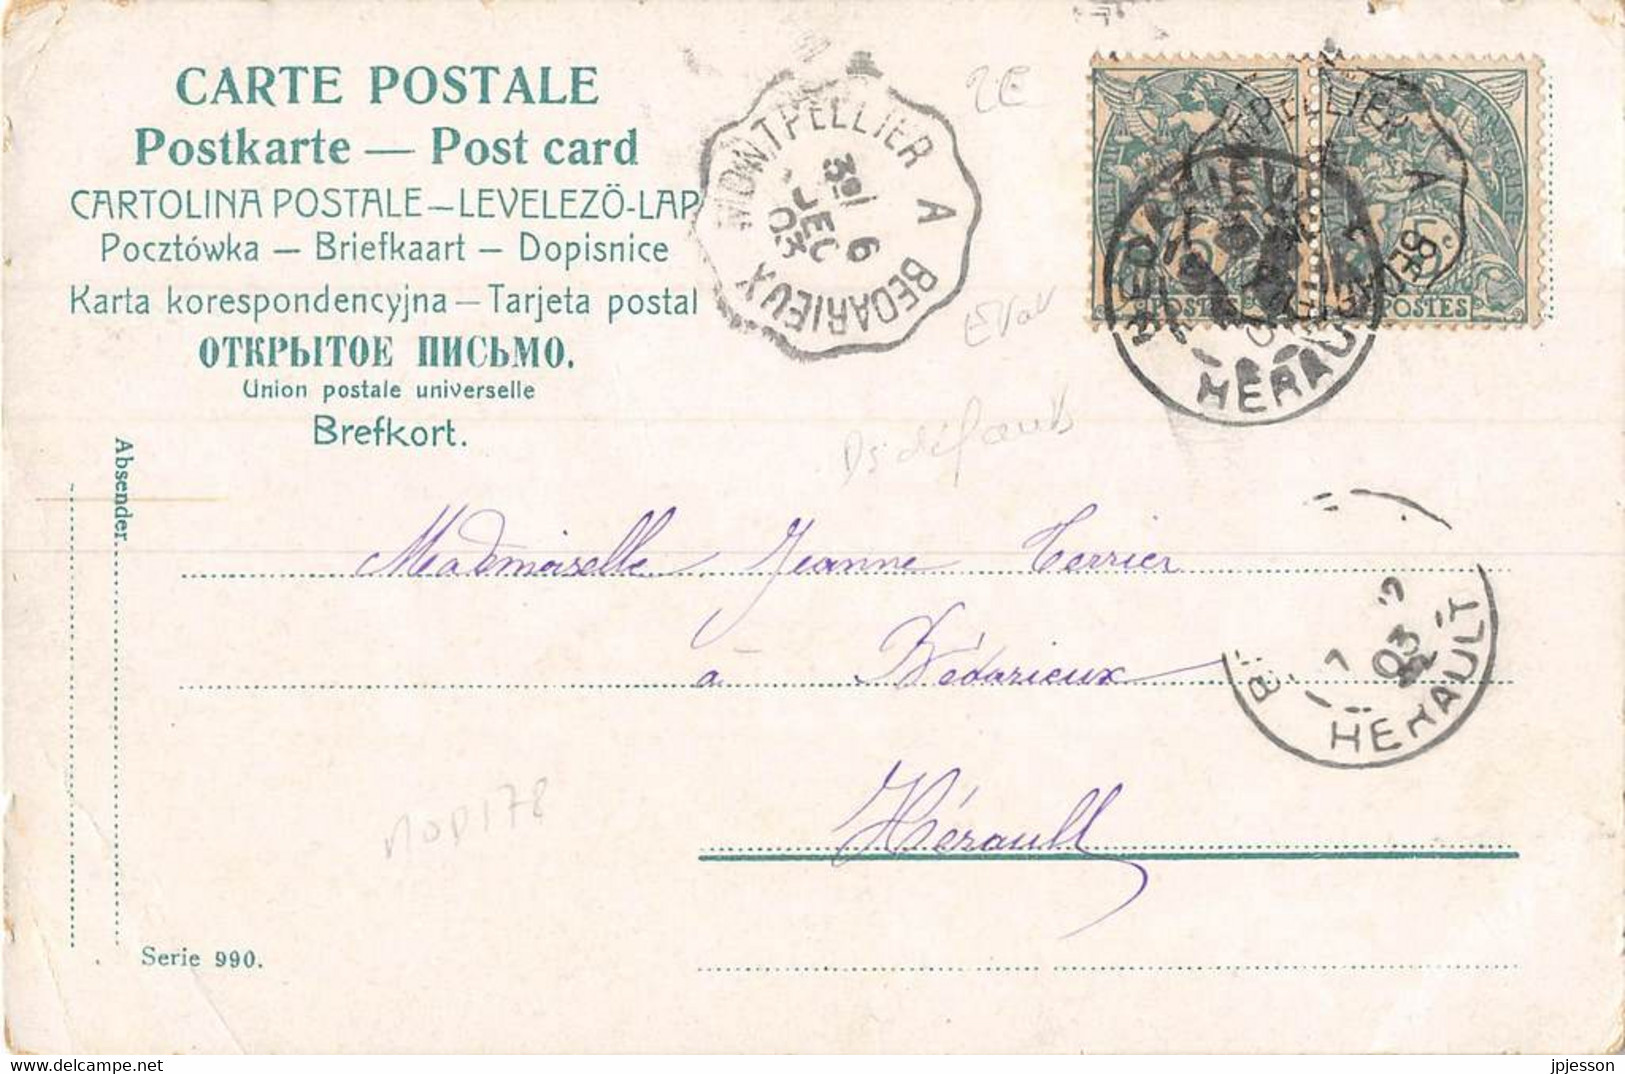 CARTE POSTALE
Postkarte — Post card
CARTOLINA POSTALE—LEVELEZÖ-LAP
Pocztówka — Briefkaart — Dopisnice
Karta korespondencyjna — Tarjeta postal
ОТКРЫТОЕ ПИСЬМО.
Union postale universelle
Brefkort.
Absender
MONTPELLIER A BEDARIEUX
3º/
6
DEC
03
2E
POSTES
POSTES
HERAULT
Ds défauts
Mademoiselle Jeanne Terrier
à Bédarieux
Hérault
03
HERAULT
MOD178
Serie 990.
jpjesson